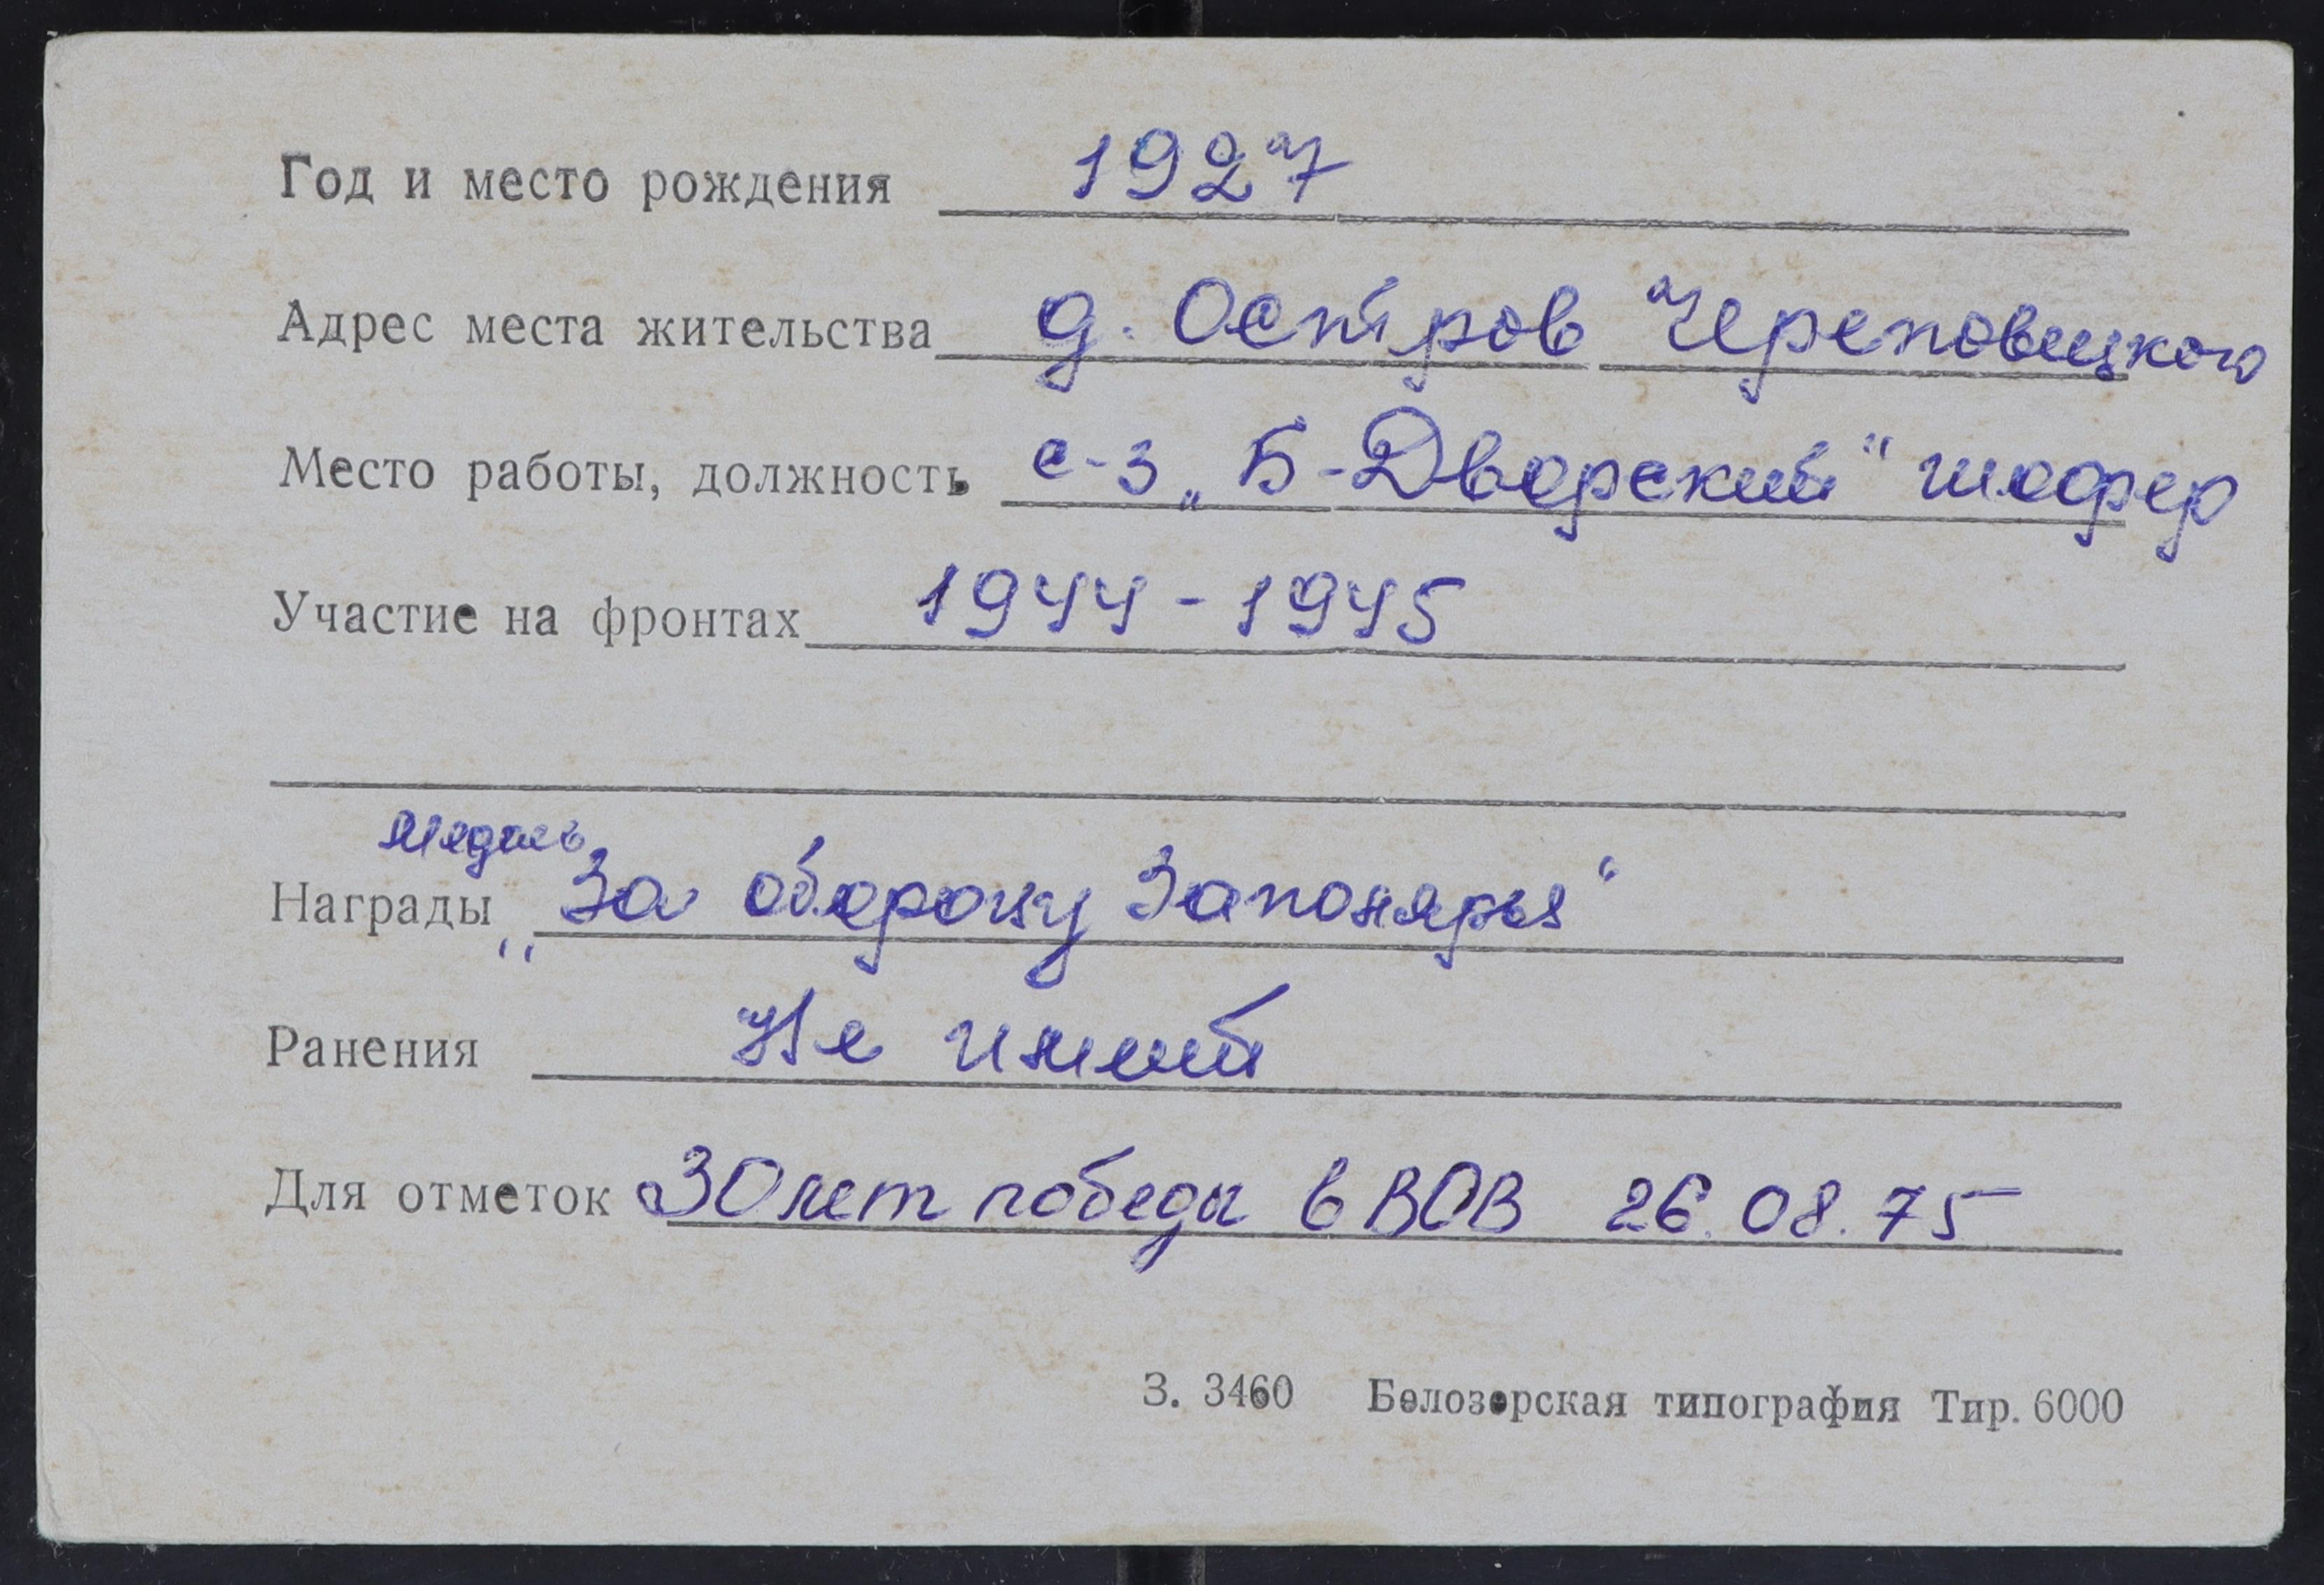 Год и место рождения 1927
Адрес места жительства д. Остров Череповецкого
Место работы, должность с-з „Б-Дворский“ шофер
Участие на фронтах 1944-1945
медаль
Награды „За оборону Заполярья“
Ранения Не имеет
Для отметок 30 лет победы в ВОВ 26.08.75
З. 3460 Белозерская типография Тир. 6000